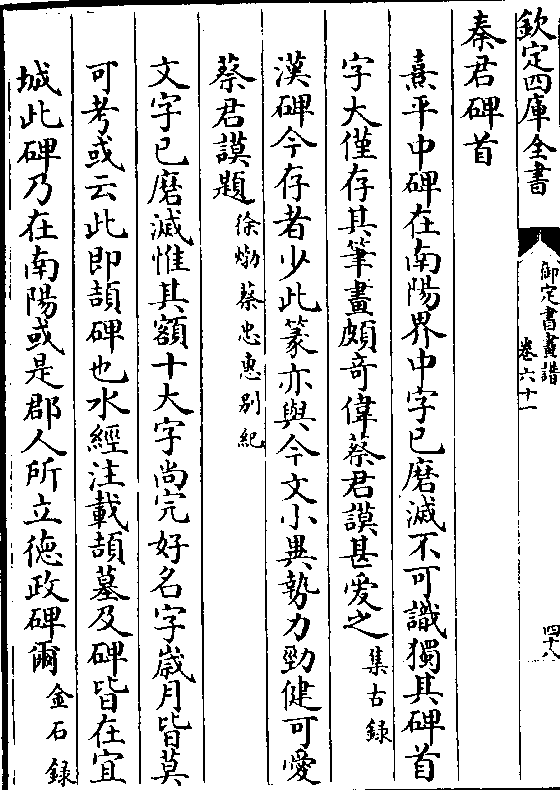 欽定四庫全書
御定書畫譜
卷六十一
四十八
秦君碑首
熹平中碑在南陽界中字已磨滅不可識獨其碑首
字大僅存其筆畫頗奇偉蔡君謨甚愛之集古録
漢碑今存者少此篆亦與今文小異勢力勁健可愛
蔡君謨題徐𤊹蔡忠惠别紀
文字已磨滅惟其額十大字尚完好名字嵗月皆莫
可考或云此即頡碑也水經注載頡墓及碑皆在宜
城此碑乃在南陽或是郡人所立徳政碑爾金石録